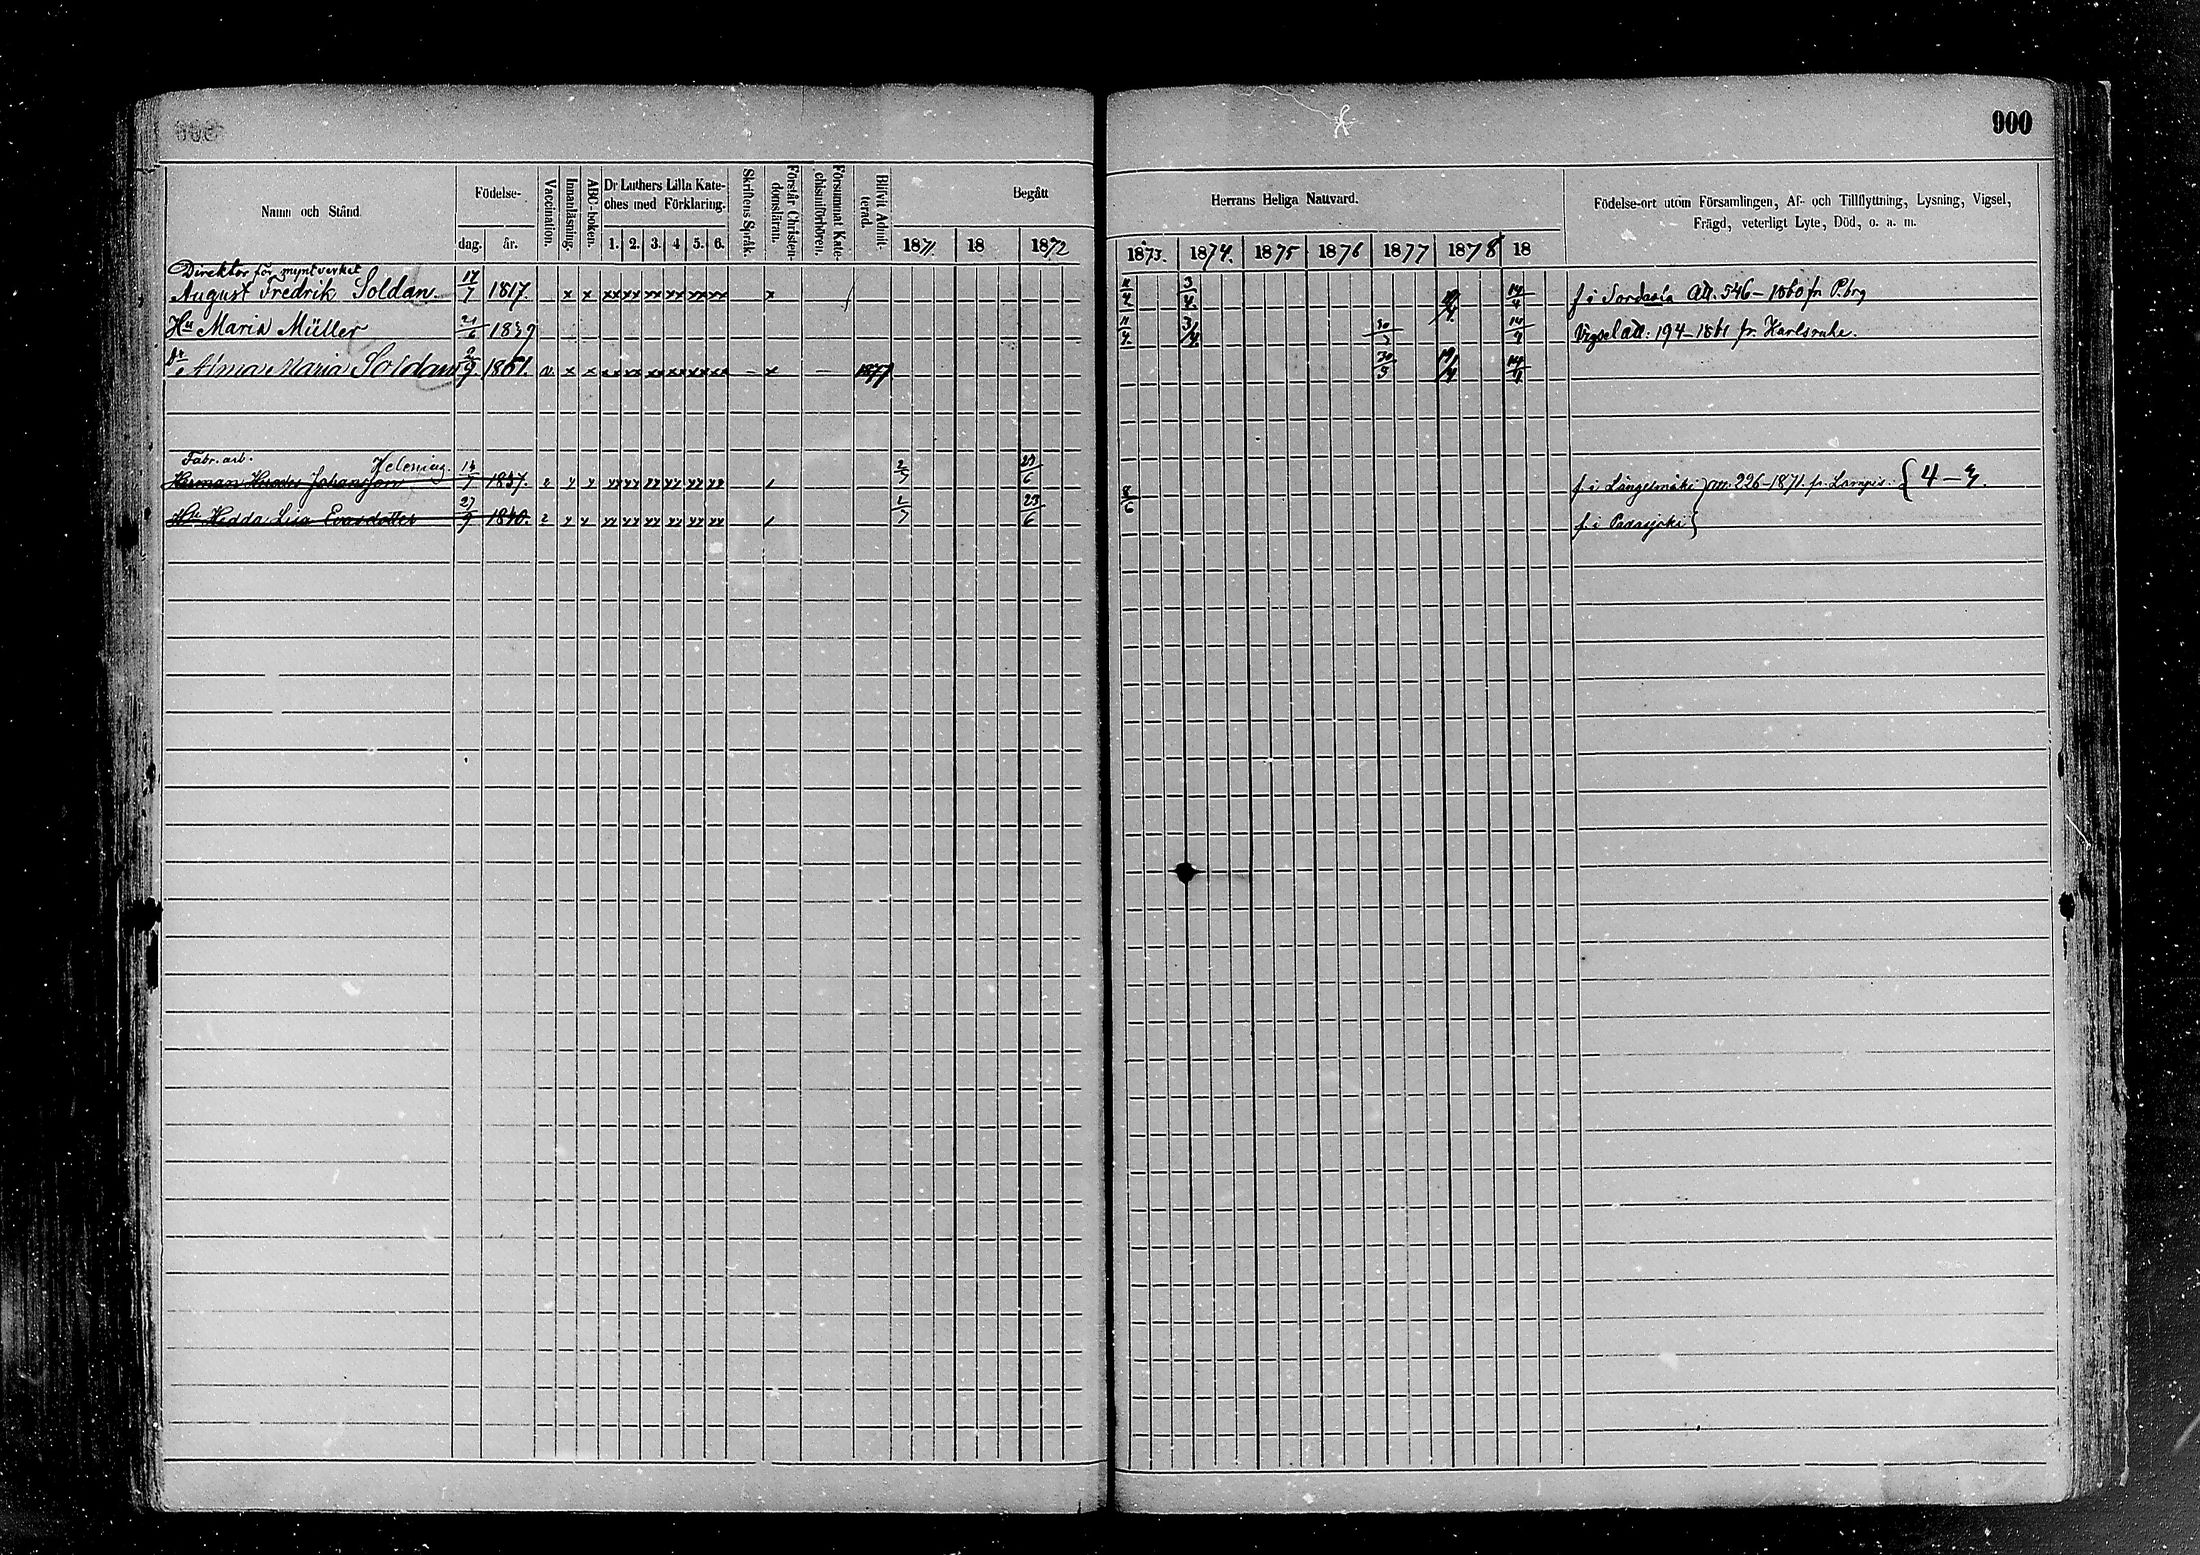 900
Namn och Stånd.
Födelse-
dag.
år.
Vaccination.
Innanläsning.
ABC-boken.
Dr Luthers Lilla Kate-
ches med Förklaring.
1. 2. 3. 4 5. 6.
Skriftens Språk.
Förstår Christen-
domsläran.
Försummat Kate-
chismiförhören.
Blifvit Admit-
terad.
Begått
1871. 18 1872
Herrans Heliga Nattvard.
1873. 1874. 1875 1876 1877 1878 18
Födelse-ort utom Församlingen, Af- och Tillflyttning, Lysning, Vigsel,
Frägd, veterligt Lyte, Död, o. a. m.
Direktor för myntverket
August Fredrik Soldan 17/7 1817. x x xx xx xx xx xx xx x 11/4 3/4 14/4 f i Sordavala Att. 546–1860 fr P.brg
Hu Maria Müller 21/6 1839 11/4 3/4 30/5 14/4 Vigsel att: 194–1861 fr. Karlsruhe.
Dr Alma Maria Soldan 2/9 1861. v x x xx xx xx xx xx xx – x – 1877 30/5 19/4 14/4
Fabr. arb. Helenius.
Herman Johansson 13/7 1837. 2/7 23/6 f. i Längelmäki att. 226–1871. fr. Lampis. { 4 –
Hu Hedda Lisa Evasdotter 27/9 1840. 2/7 23/6 8/6 f. i Padasjoki